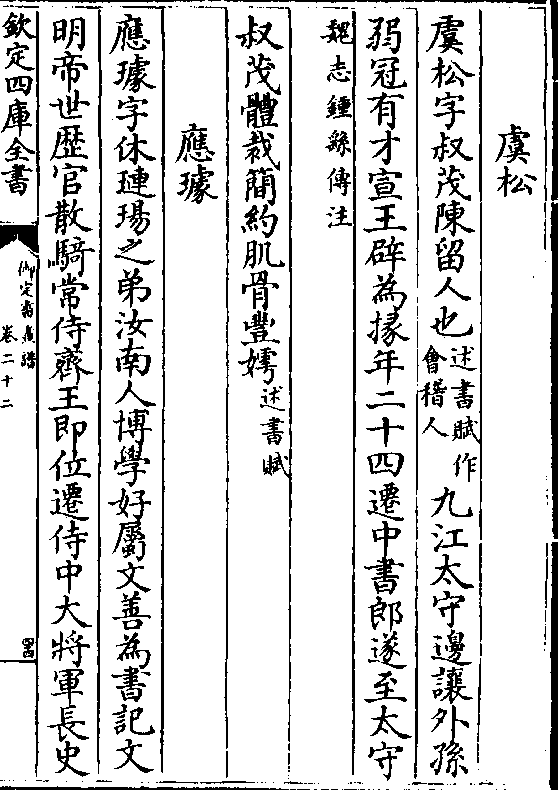 虞松
虞松字叔茂陳留人也述書賦作會稽人九江太守邊讓外孫
弱冠有才宣王辟為掾年二十四遷中書郎遂至太守
魏志鍾繇傳注
叔茂體裁簡約肌骨豐嫮述書賦
應璩
應璩字休璉瑒之弟汝南人博學好屬文善為書記文
明帝世歴官散騎常侍齊王即位遷侍中大將軍長史
欽定四庫全書
御定書畫譜
卷二十二